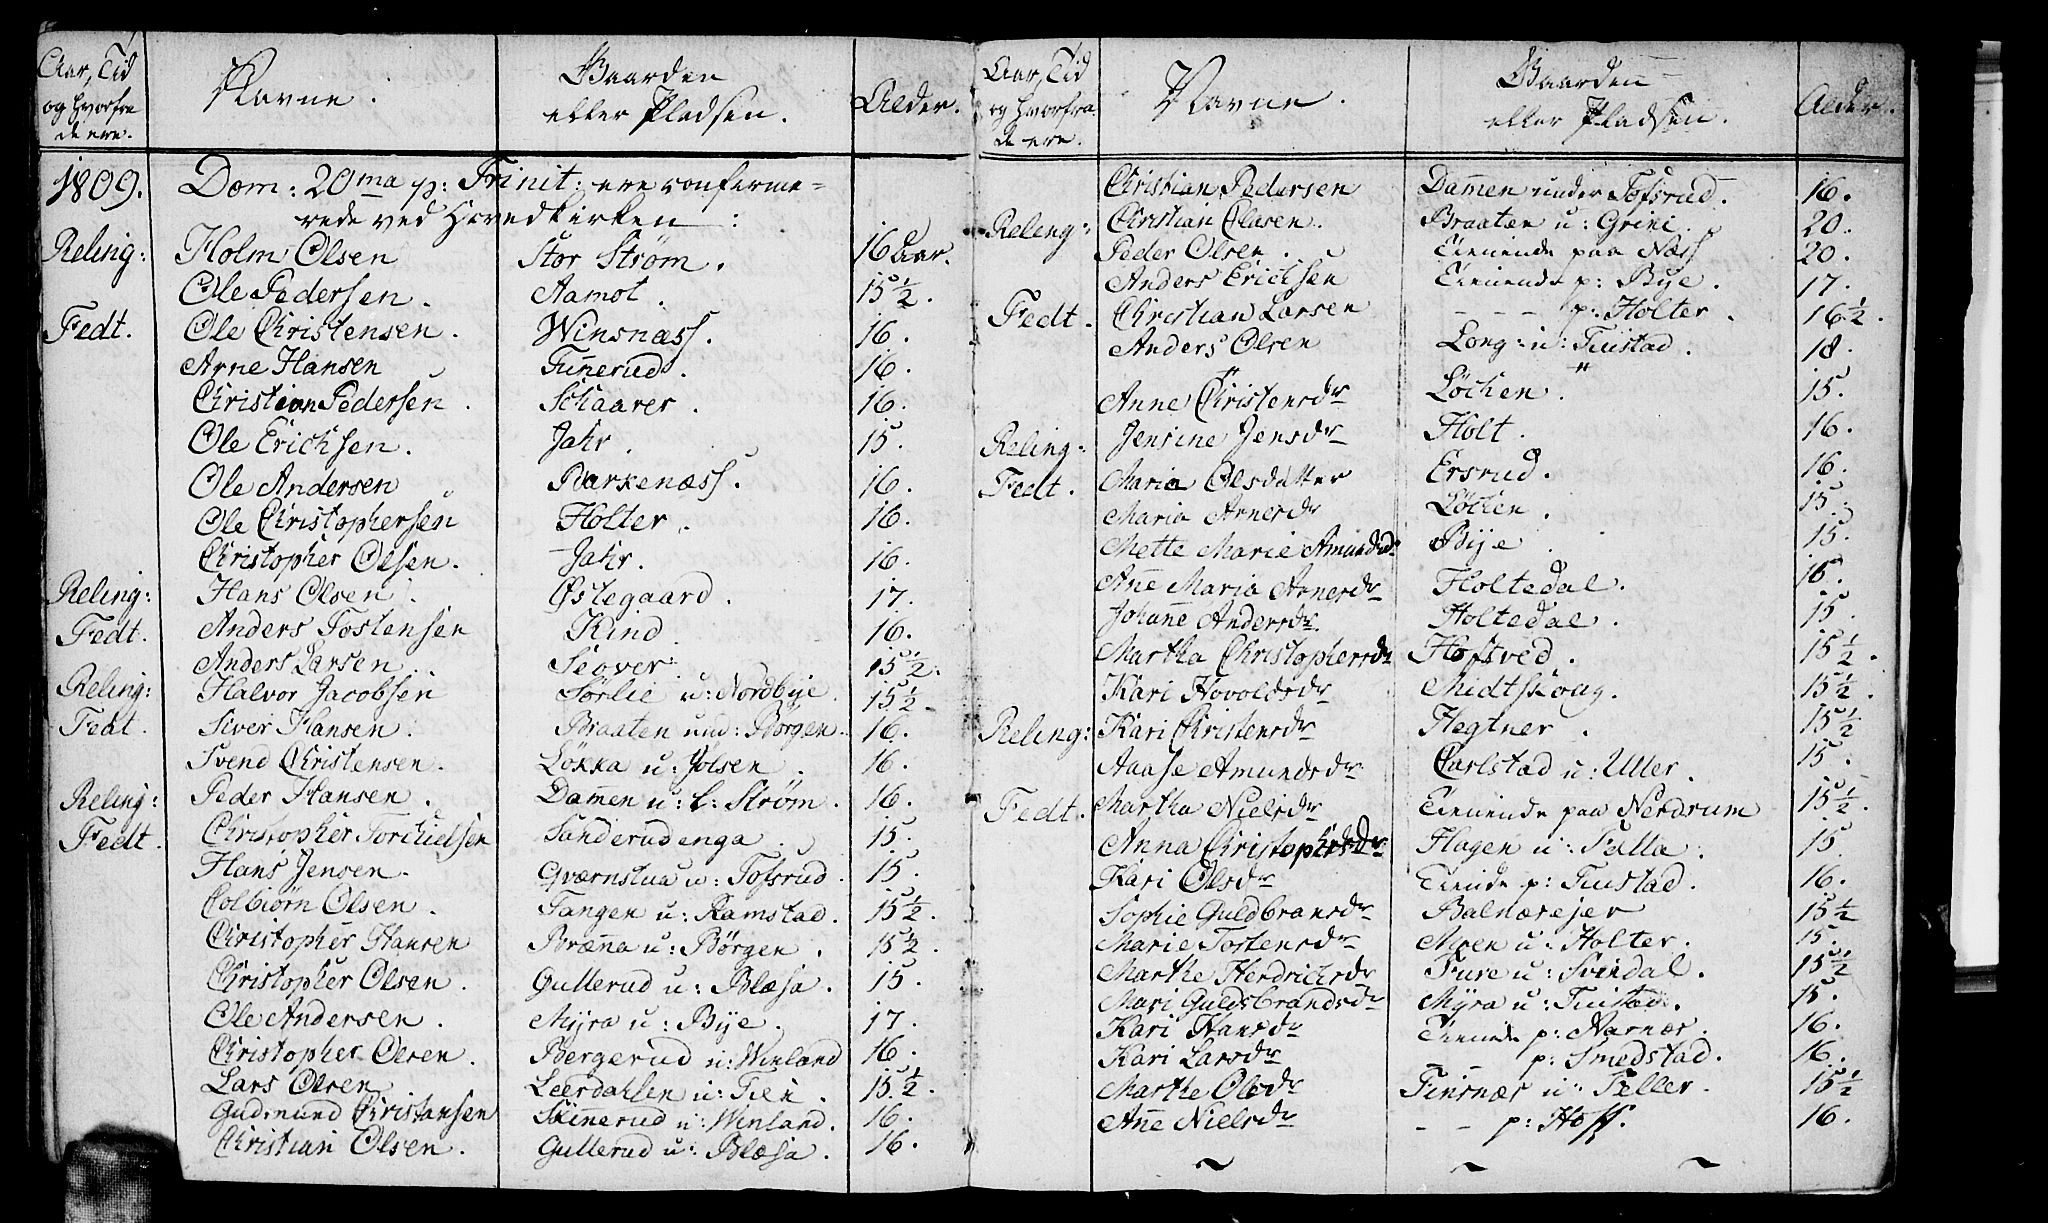 Aar, Tid
og hvorfra
de ere.
Navne.
Gaarden
eller Pladsen.
Alder.
1809. Dom: 20ma p: Trinit: ere confirme=
rede ved Hovedkirken :
Reling: Holm Olsen Stor Strøm. 16 Aar.
Ole Pedersen. Aamot. 15½.
Fedt. Ole Christensen. Winsnæss. 16.
Arne Hansen Funnerud. 16.
Christian Pedersen. Schaarer. 16.
Ole Erichsen. Jahr. 15.
Ole Andersen Barkenæss. 16.
Ole Christophersen Holter. 16.
Christopher Olsen. Jahr. 16.
Reling: Hans Olsen. Østegaard. 17.
Fedt. Anders Tostensen Kind. 16.
Anders Larsen. Seover. 15½.
Reling: Halvor Jacobsen Sørlie u: Nordbye 15½.
Fedt. Siver Hansen. Braaten und: Børgen. 16.
Svend Christensen. Løkka u: Jølsen. 16.
Reling: Peder Hansen. Dammen u: l: Strøm. 16.
Fedt. Christopher Torchielsen Sanderudenga. 15.
Hans Jensen. Qværnstua u: Tofsrud. 15.
Colbiørn Olsen. Tangen u: Ramstad. 15½.
Christopher Hansen Brænna u: Børgen. 15½.
Christopher Olsen. Gullerud u: Blæsa. 15.
Ole Andersen. Myra u: Bye. 17.
Christopher Olsen. Bergerud u: Winland 16.
Lars Olsen Leerdahlen u: Tien. 15½.
Gudmund Christansen Skinnerud u: Winland. 16.
Christian Olsen. Gullerud u: Blæsa. 16.
Aar, Tid
og hvorfra
de ere.
Navne.
Gaarden
eller Pladsen.
Alder.
Christian Pedersen Dammen under Tofsrud. 16.
Reling: Christian Olesen. Braaten u: Grini. 20.
Peder Olsen. Tienende paa Næss 20.
Anders Erichsen Tienende p: Bye. 17.
Fedt. Christian Larsen - - - p: Holter. 16½.
Anders Olsen Long: u: Tuistad. 18.
Anne Christensdr Løchen. 15.
Reling: Jensine Jensdr Holt. 16.
Fedt. Maria Olsdatter Ersrud. 16.
Maria Arnesdr Løchen. 15.
Mette Marie Amundsdr Bye. 15.
Anne Maria Arnesdr Holtedal. 15.
Johanne Andersdr Holtedal. 15.
Martha Christophersdr Hoftved. 15½.
Kari Hovoldsdr Midtskoug. 15½.
Reling: Kari Christensdr Hegtner. 15½
Aaase Amundsdr Carlstad u: Uller. 15.
Fedt. Martha Nielsdr Tienende paa Nerdrum 15½.
Anna Christophersdr Hagen u: Falla. 15
Kari Olsdr Tiende p: Tuistad. 16.
Sophie Guldbransdr Balnæsejer 15½
Marie Tostensdr Moen u: Holter. 15.
Marthe Hendrichsdr Fure u: Svindal. 15½
Mari Guldsbrandsdr Myra u: Tuistad. 15.
Kari Hansdr Tienende p: Narnæs. 16.
Kari Larsdr - p: Smedstad. 16.
Marthe Olsdr Finsnæs u: Teller. 15½
Anne Nielsdr - - p: Hoff. 16.